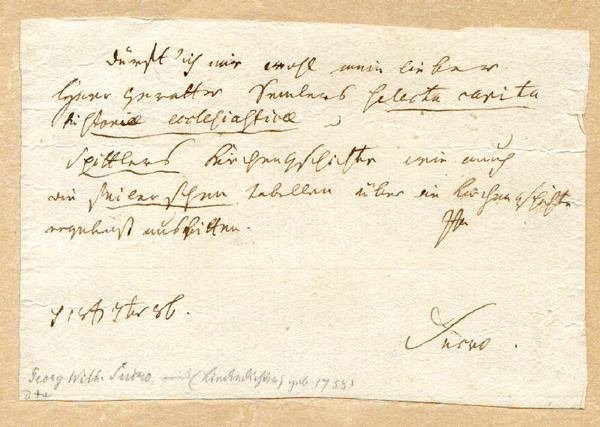 Dürft' ich mir wohl mein lieber
Herr Gevatter Semlers selecta capita
historiae ecclesiasticae,
Spittlers Kirchengschichte wie auch
die Seilerschen tabellen über die Kirchengschichte
ergebenst ausbitten.
7br 86.
Sucro.
Georg Wilh. Sucro, (Liederdichter) geb. 1758